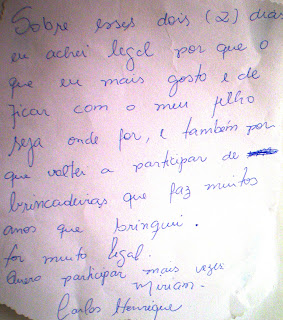 Sobre esses dois (2) dias
eu achei legal por que o
que eu mais gosto e de
ficar com o meu filho
seja onde for, e também por
que voltei a participar de
brincadeiras que faz muitos
anos que brinquei.
foi muito legal.
Quero participar mais vezes
Miriam.
Carlos Henrique